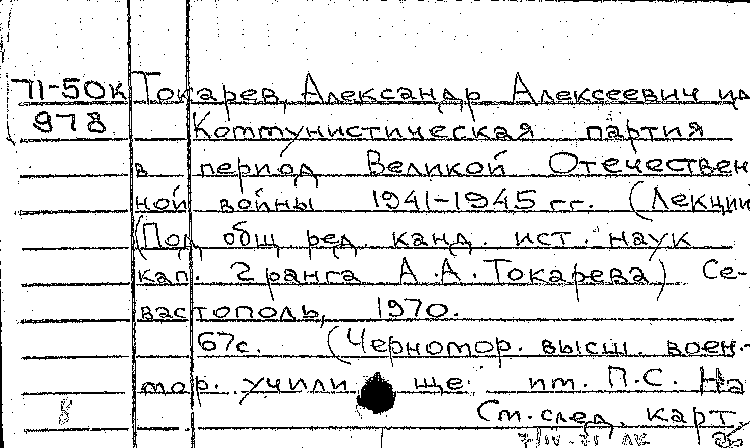 71-50к Токарев, Александр Алексеевич
978 Коммунистическая партия
в период Великой Отечествен
ной войны 1941-1945 гг. (Лекции
(Под общ ред. канд. ист. наук
кап. 2 ранга А.А. Токарева) Се-
вастополь, 1970.
67с. (Черномор. высш. воен.-
мор. учили ще им. П.С. На
См. след. карт.